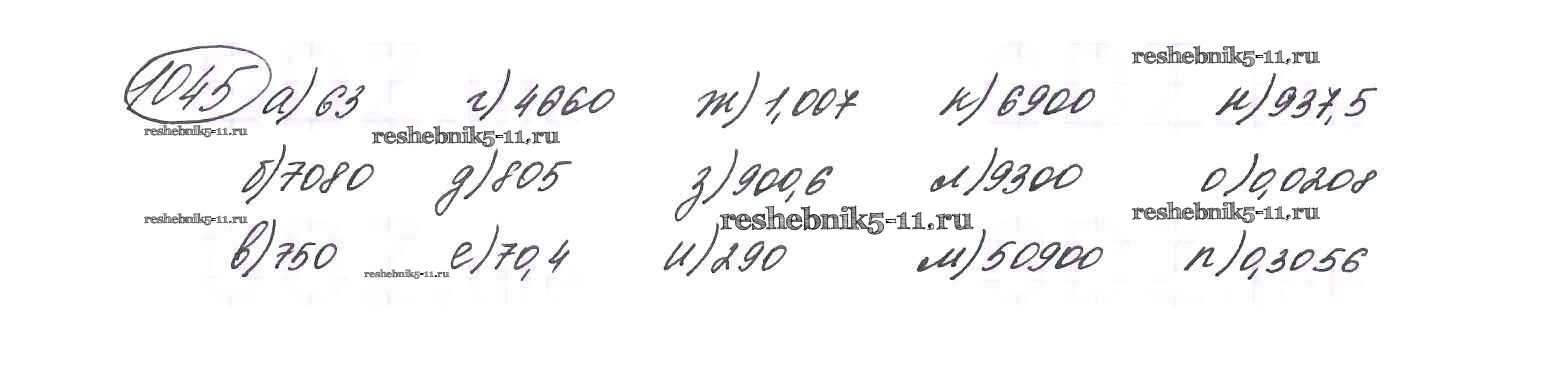 reshebnik5-11.ru
1045 а) 63 г) 4660 ж) 1,007 к) 6900 н) 937,5
reshebnik5-11.ru reshebnik5-11.ru
б) 7080 д) 805 з) 900,6 л) 9300 о) 0,0208
reshebnik5-11.ru reshebnik5-11.ru reshebnik5-11.ru
в) 750 е) 70,4 и) 290 м) 50900 п) 0,3056
reshebnik5-11.ru